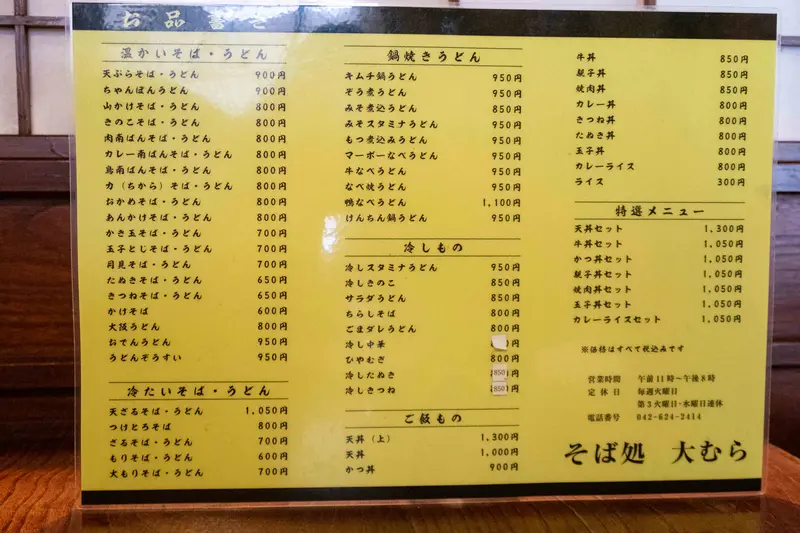 お品書き
温かいそば・うどん
天ぷらそば・うどん 900円
ちゃんぽんうどん 900円
山かけそば・うどん 800円
きのこそば・うどん 800円
肉南ばんそば・うどん 800円
カレー南ばんそば・うどん 800円
鳥南ばんそば・うどん 800円
力(ちから)そば・うどん 800円
おかめそば・うどん 800円
あんかけそば・うどん 800円
かき玉そば・うどん 700円
玉子とじそば・うどん 700円
月見そば・うどん 700円
たぬきそば・うどん 650円
きつねそば・うどん 650円
かけそば 600円
大阪うどん 800円
おでんうどん 950円
うどんぞうすい 950円
冷たいそば・うどん
天ざるそば・うどん 1,050円
つけとろそば 800円
ざるそば・うどん 700円
もりそば・うどん 600円
大もりそば・うどん 700円
鍋焼きうどん
キムチ鍋うどん 950円
ぞう煮うどん 950円
みそ煮込うどん 850円
みそスタミナうどん 950円
もつ煮込みうどん 950円
マーボーなべうどん 950円
牛なべうどん 950円
なべ焼うどん 950円
鴨なべうどん 1,100円
けんちん鍋うどん 950円
冷しもの
冷しスタミナうどん 950円
冷しきのこ 850円
サラダうどん 850円
ちらしそば 800円
ごまダレうどん 800円
冷し中華 円
ひやむぎ 800円
冷したぬき 850円
冷しきつね 850円
ご飯もの
天丼(上) 1,300円
天丼 1,000円
かつ丼 900円
牛丼 850円
親子丼 850円
焼肉丼 850円
カレー丼 800円
きつね丼 800円
たぬき丼 800円
玉子丼 800円
カレーライス 800円
ライス 300円
特選メニュー
天丼セット 1,300円
牛丼セット 1,050円
かつ丼セット 1,050円
親子丼セット 1,050円
焼肉丼セット 1,050円
玉子丼セット 1,050円
カレーライスセット 1,050円
※価格はすべて税込みです
営業時間 午前11時〜午後8時
定休日 毎週火曜日
第3火曜日・水曜日連休
電話番号 042-624-2414
そば処 大むら